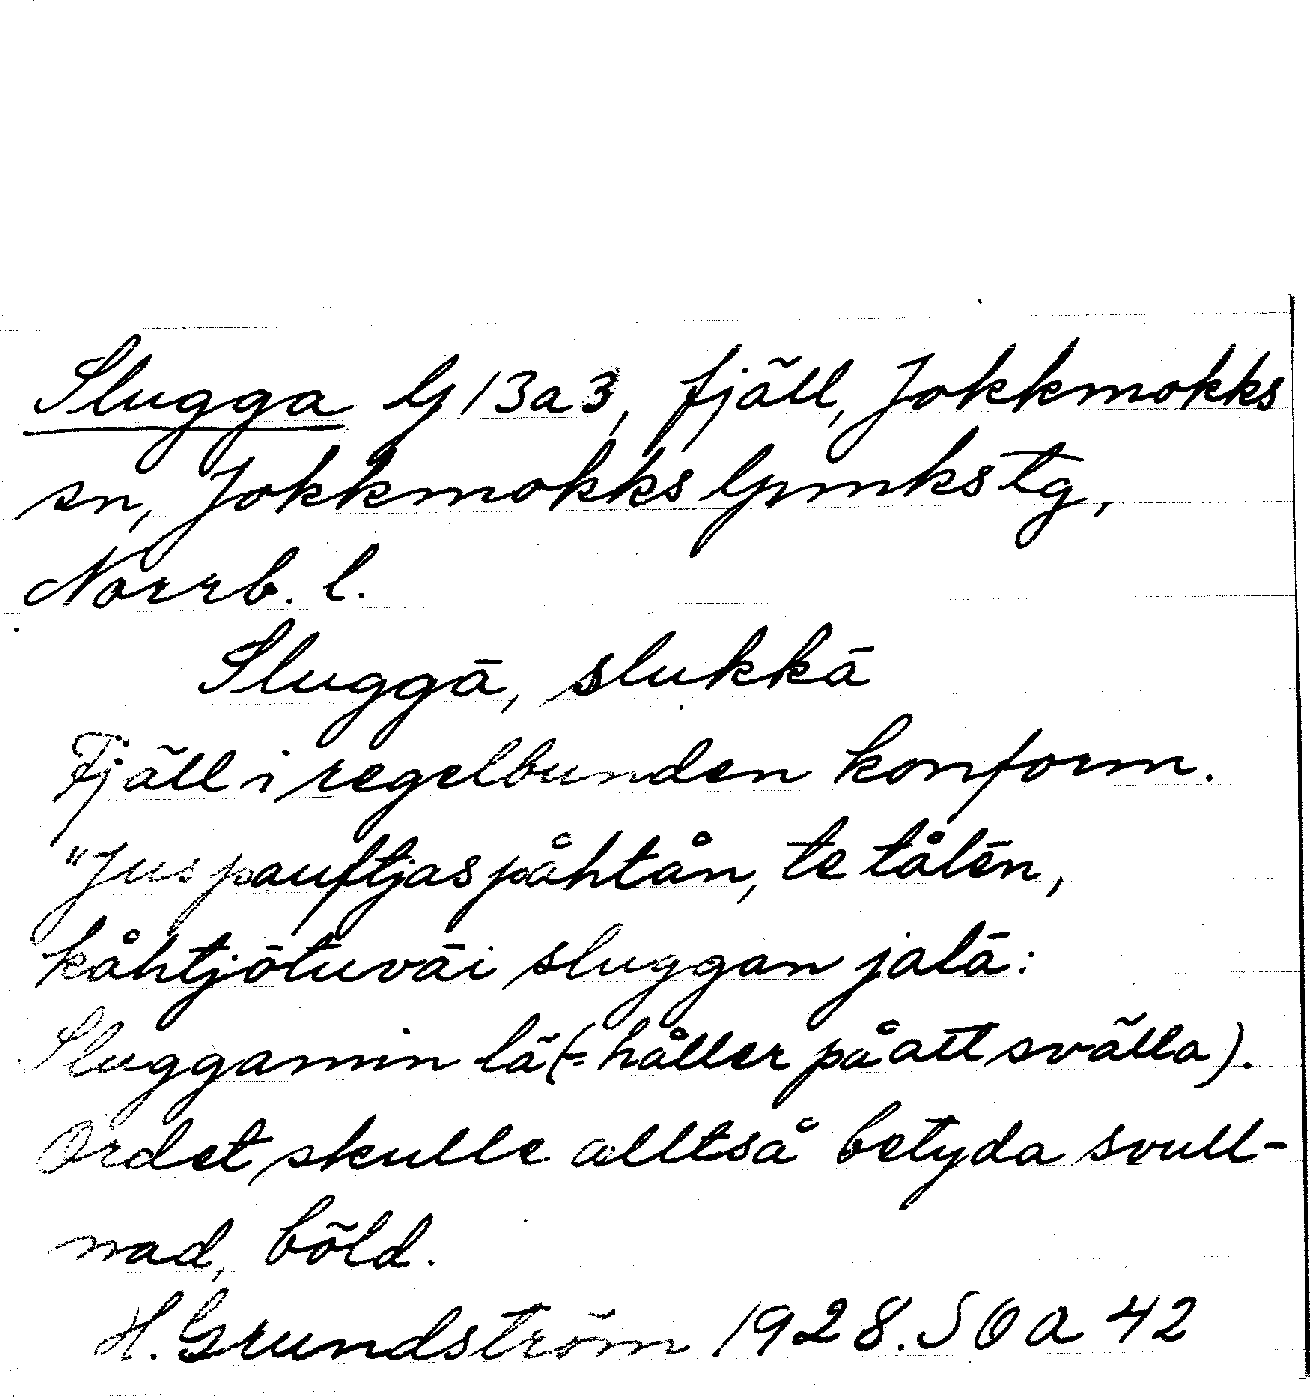 Slugga G 13a3, fjäll, Jokkmokks
sn, Jokkmokks lpmkstg,
Norrb. l.
Sluggā, slukkā
Fjäll i regelbunden konform.
"Jus pauftjas påhtån, te tålēn,
kåhtjōtuvāi sluggan jalā:
Sluggamin lä (= håller på att svälla).
Ordet skulle alltså betyda svull-
nad, böld.
H. Grundström 1928. SOa 42